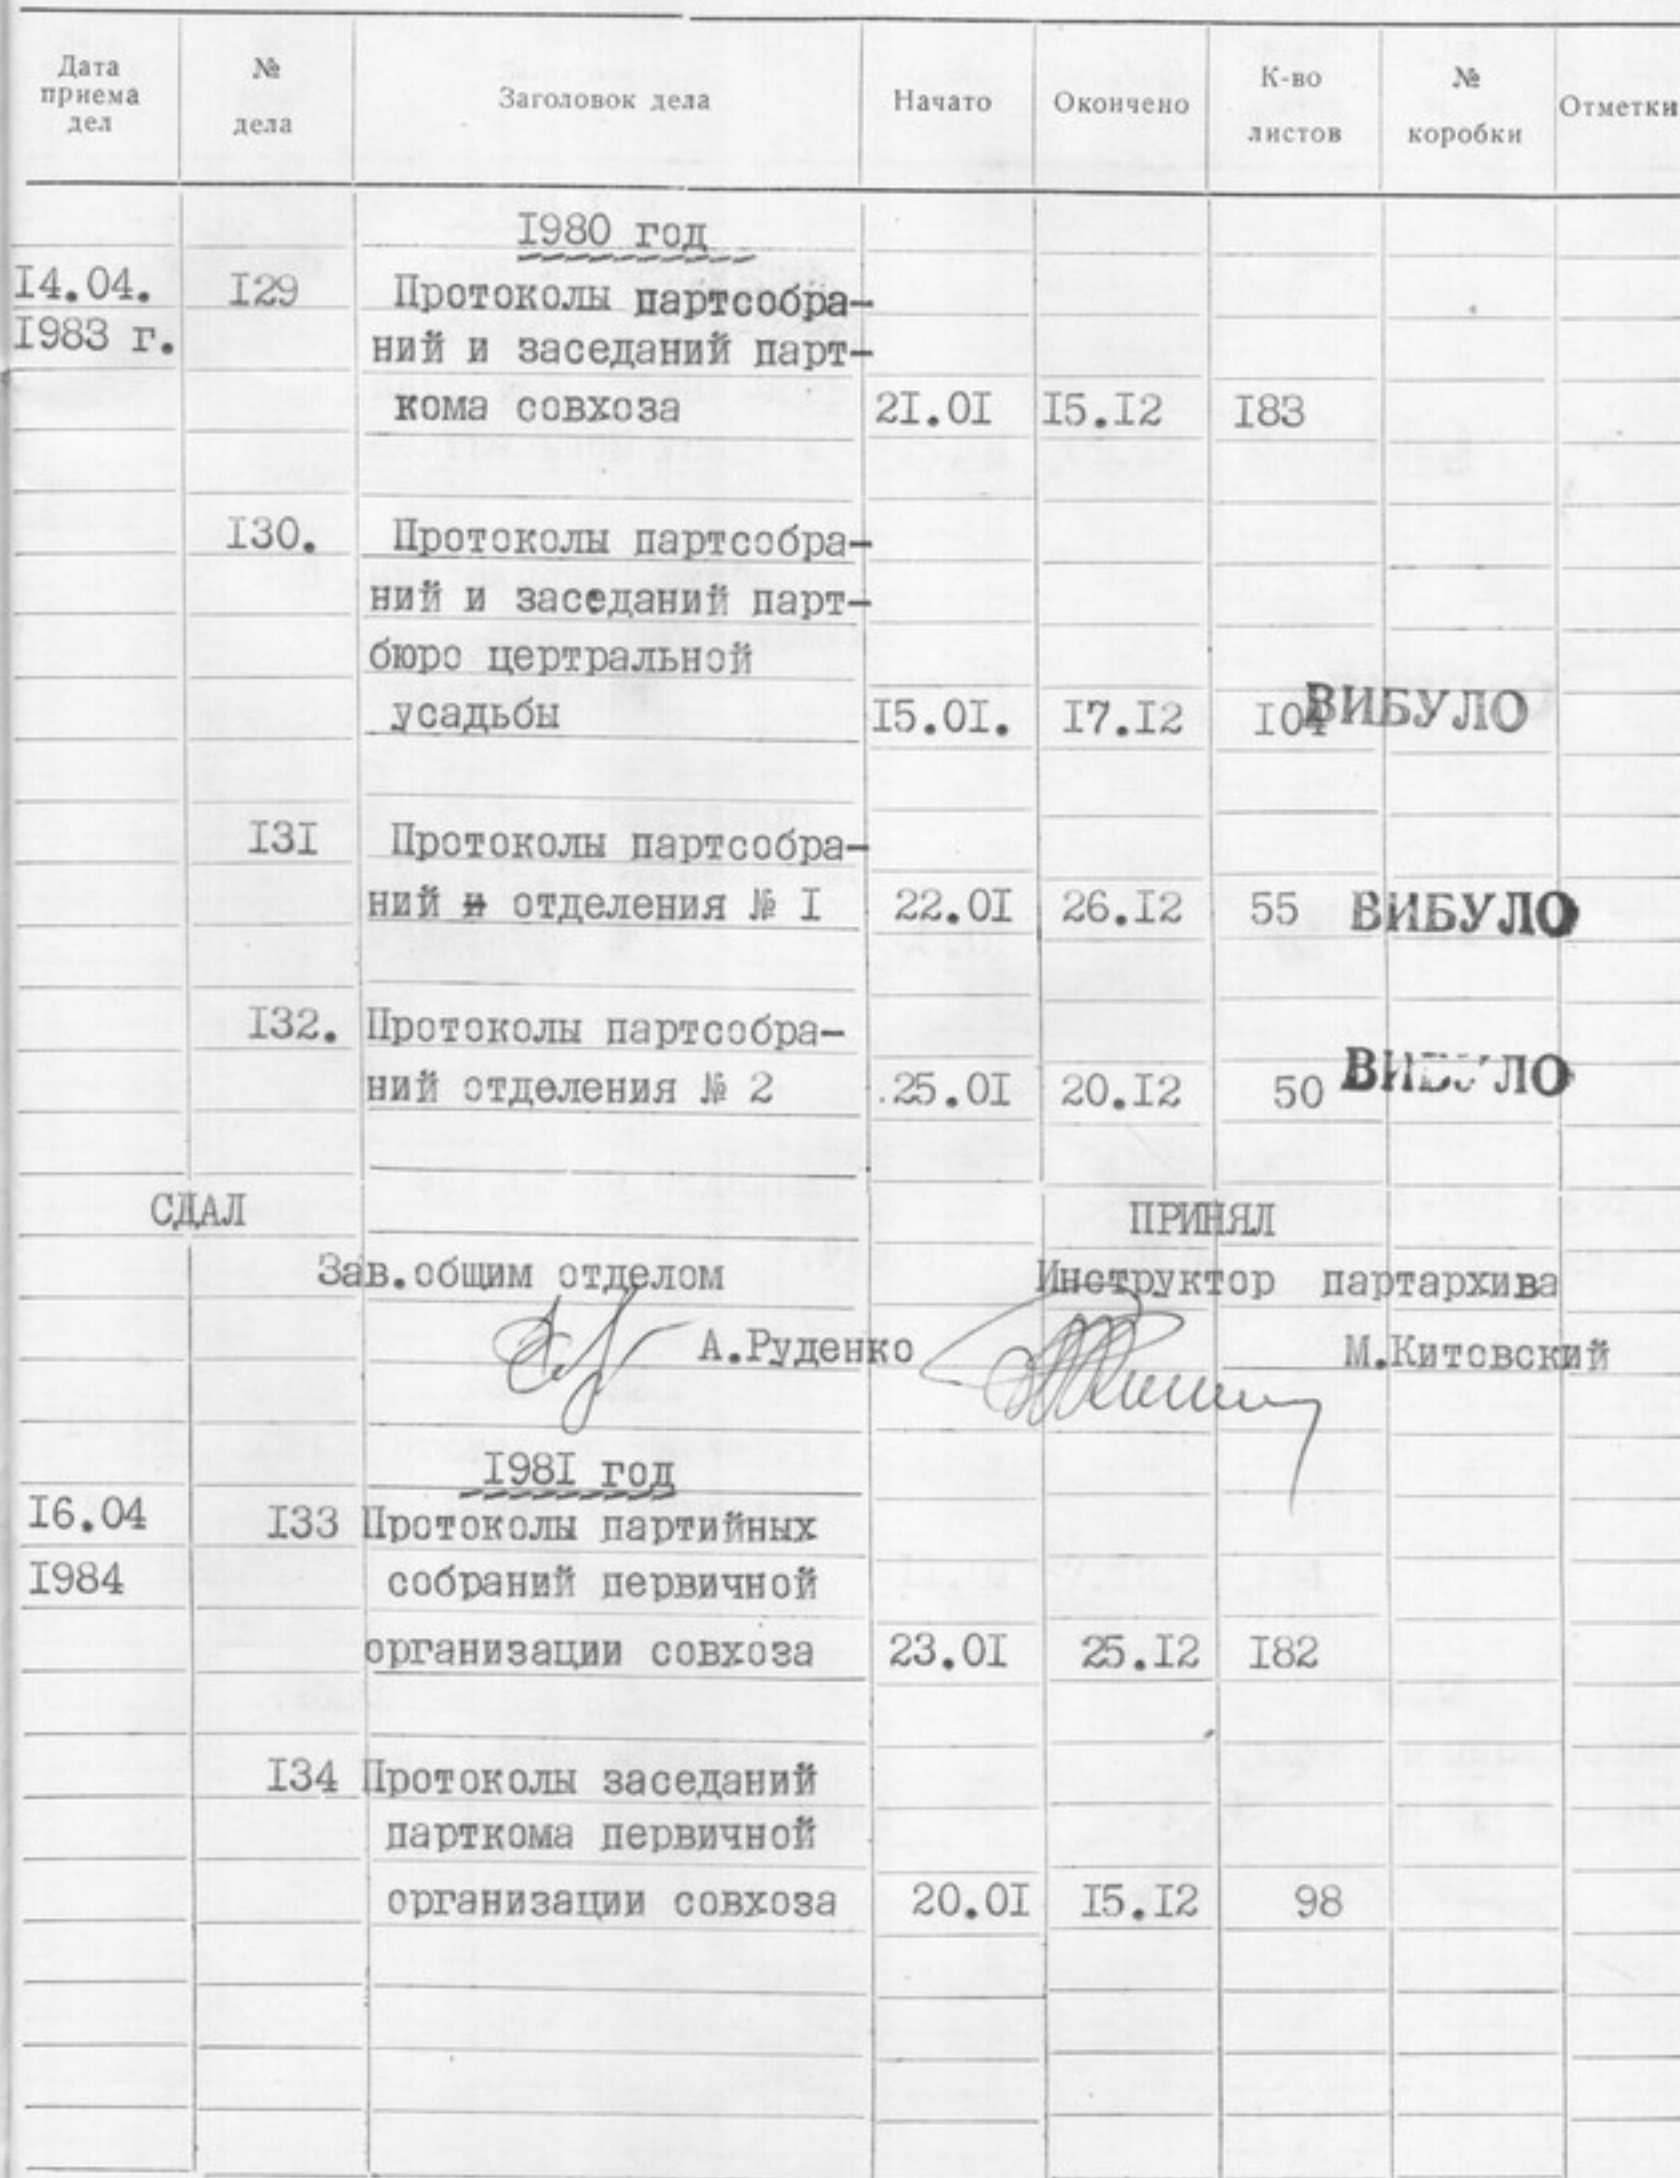 Дата приема дел № дела Заголовок дела Начато Окончено К-во листов № коробки Отметки
1980 год
14.04. 129 Протоколы партсобра-
1983 г. ний и заседаний парт-
кома совхоза 21.01 15.12 183
130. Протоколы партсобра-
ний и заседаний парт-
бюро цертральной
усадьбы 15.01. 17.12 ВИБУЛО
131 Протоколы партсобра-
ний и отделения № 1 22.01 26.12 55 ВИБУЛО
132. Протоколы партсобра-
ний отделения № 2 25.01 20.12 50 ВИБУЛО
СДАЛ ПРИНЯЛ
Зав.общим отделом Инструктор партархива
А.Руденко М.Китовский
1981 год
16.04 133 Протоколы партийных
1984 собраний первичной
организации совхоза 23.01 25.12 182
134 Протоколы заседаний
парткома первичной
организации совхоза 20.01 15.12 98